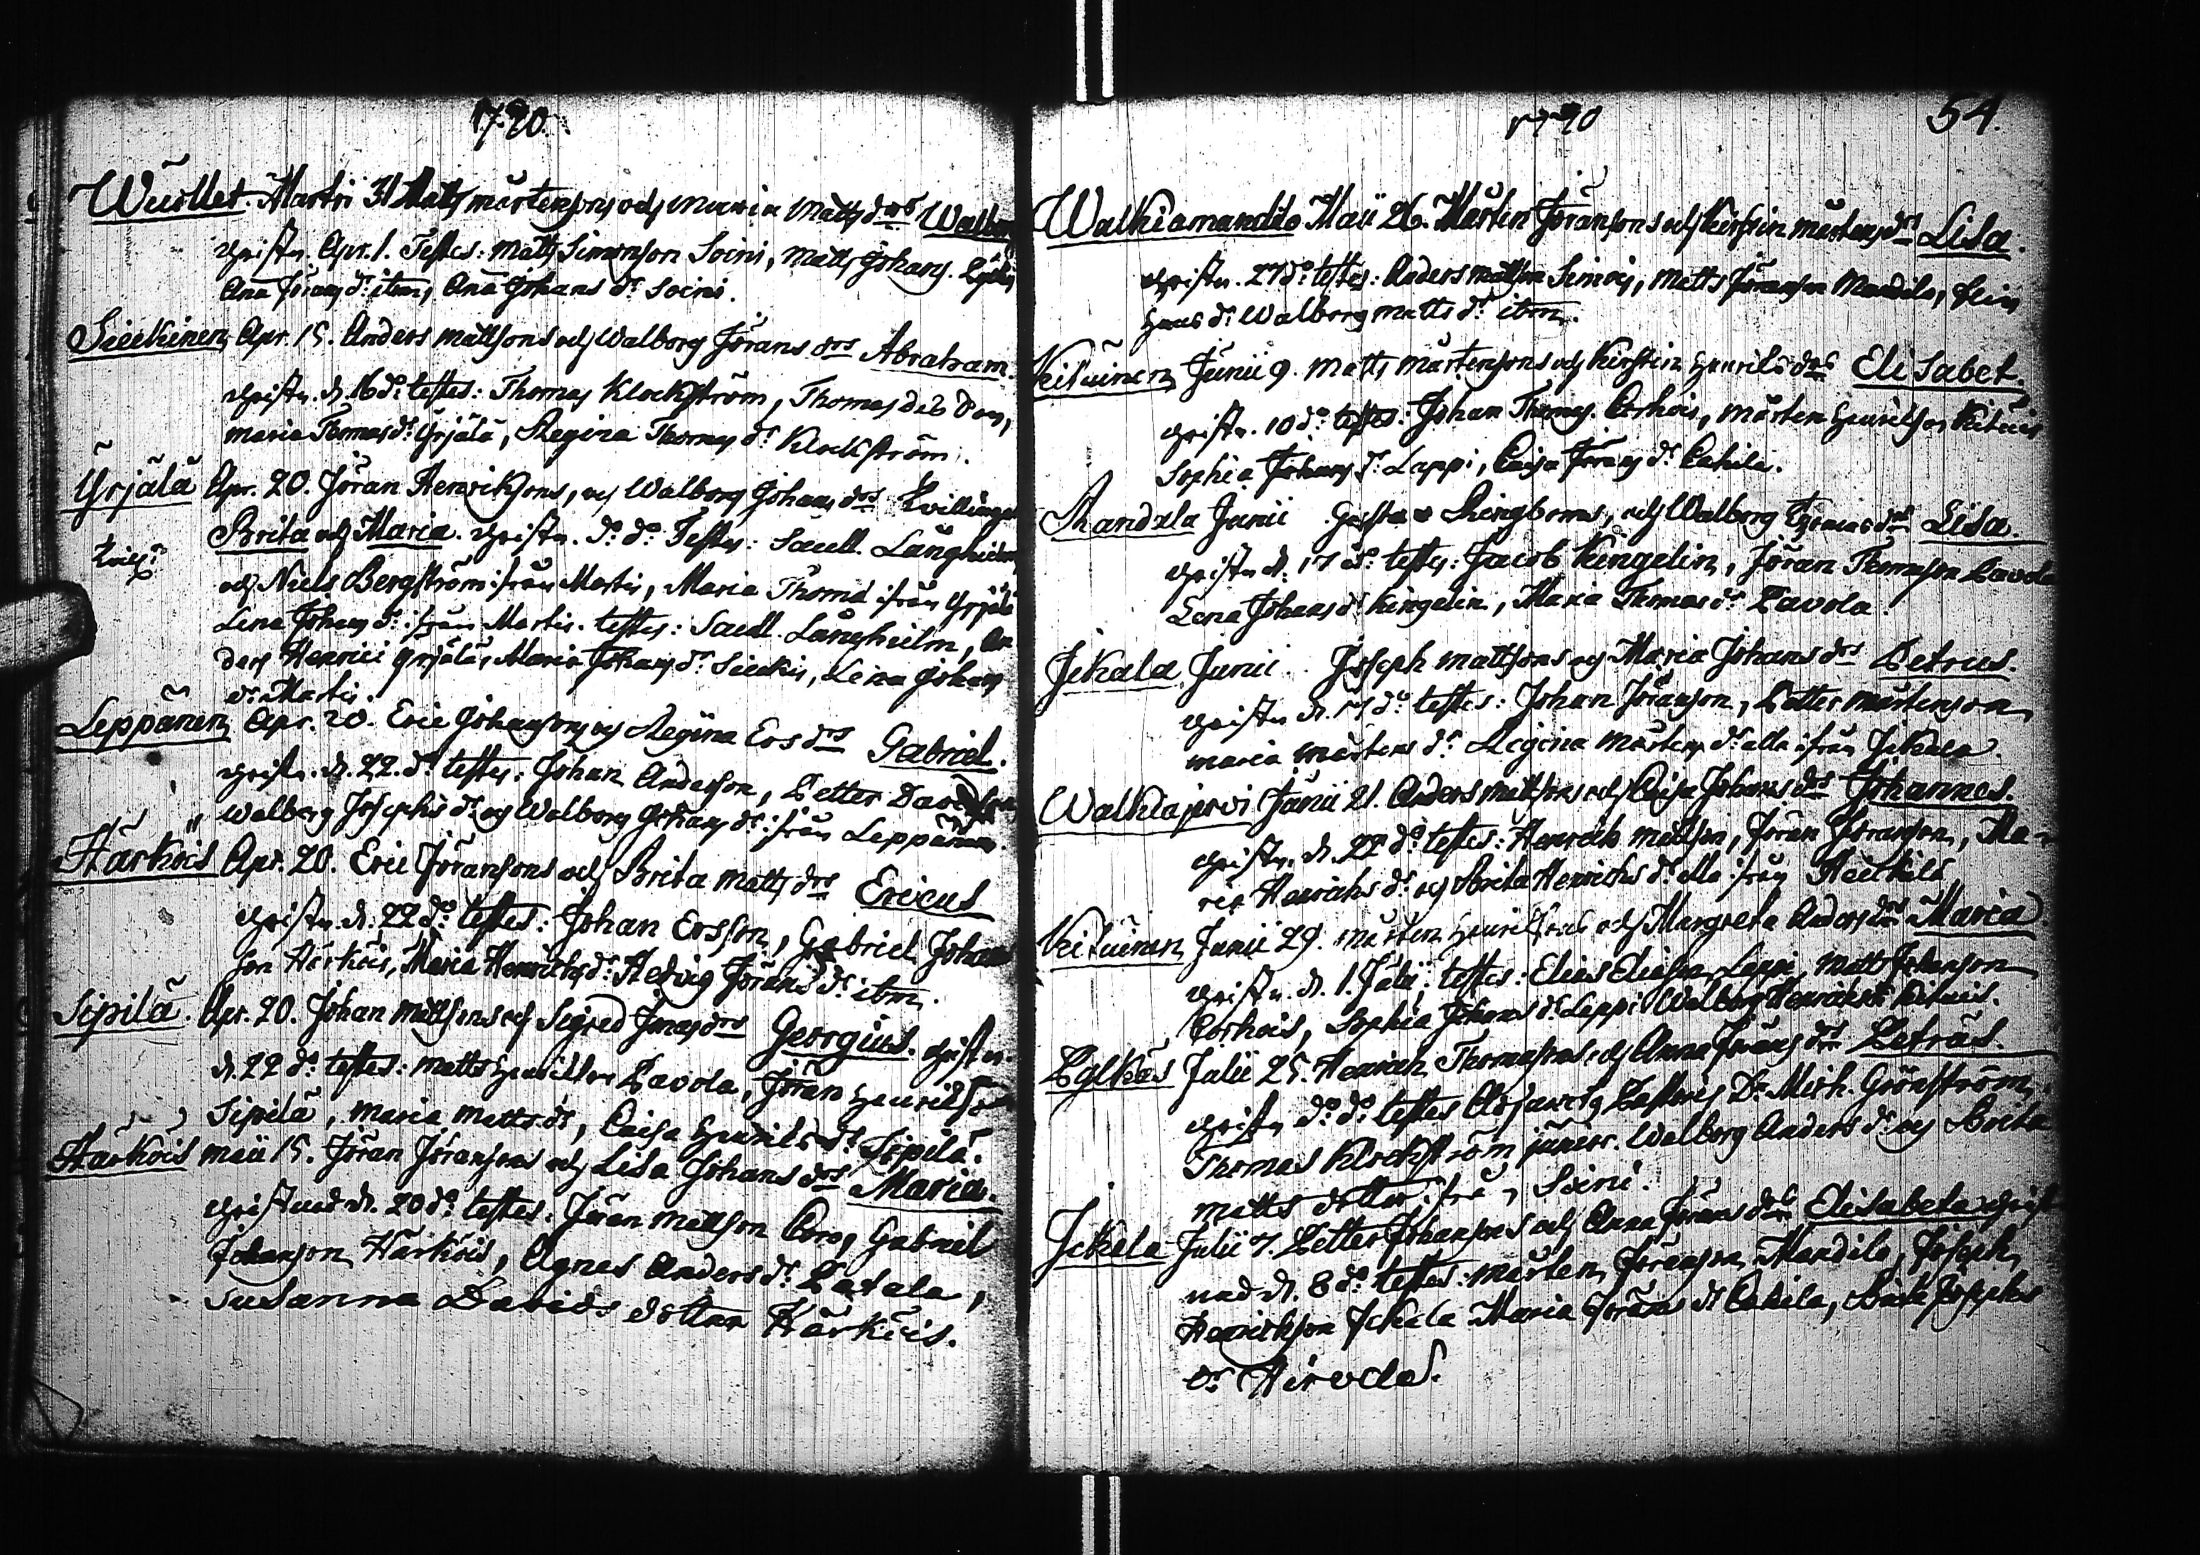 1790.
Wuollet. Martii 31 Matts mårtensons och Maria Matts drs Walbor
christn. Apr. 1. Testes: Matts Simonson Soini, Matts Johans.
Ana Jörans dr. item, Ana Johans dr. Soini.
Sieckinen, Apr. 15. Anders mattsons och Walborg Jörans drs Abraham.
christn. d. 16 do. testes: Thomas Klockström, Thomas
Maria Tomas dr. Yrjälä, Regina Thomas dr. Klockström.
Yrjälä Apr. 20. Jöran Henriksons, och Walborg Johans drs Tvillingar
Brita och Maria. christn. do. do. Testes: Saul. Långhielm,
och Niels Bergström ifrån Martis, Maria Thoms d ifrån Yrjälä
Lena Johans dr. ifrån Martis. testes: Saul. Långhielm, An
ders Henrici Yrjälä, Maria Johans dr. Sieckis, Lena Johans
dr. Martis.
Leppänen, Apr. 20. Eric Johansons och Regina Ers drs Gabriel.
christn. d. 22. do. testes: Johan Anderson, Petter Davidson
Walborg Josephs dr. og Walborg Johans dr. ifrån Leppänen.
Härköis Apr. 20. Eric Jöransons och Brita Matts drs Ericus
christn. d. 22 do. testes: Johan Ersson, Gabriel Johan
son Härköis, Maria Henrichs dr. Hedvig Jörans dr. ibm.
Sipilä. Apr. 20. Johan Mattsons och Sigred Jonas drs Georgius. christn.
d. 22 do. testes: Matts Henrikson Pavola, Jöran Henrikson
Sipilä, Maria Matts dr, Caisa Henriks dr. Sipilä.
Härköis Maii 15. Jöran Jöransons och Lisa Johans drs Maria.
christnad d. 20 do. testes: Jöran Mattson Coro, Gabriel
Johanson Härköis, Agnes Anders dr. Patala,
Susanna Davids dotter Härköis.
1790 54.
Walkiamandilo Maii 26. Mårten Jöransons och Kirstin mårtens drs Lisa.
christn. 27 do. testes: Anders mattson Simois, Matts Jöranson Mandilo,
dr. Walborg matts dr. ibm.
Keituinen, Junii 9. Matts mårtensons och Kirstin Henriks drs Elisabet.
christn. 10 do. testes: Johan Thomas. Corhois, Mårten Henrikson Keituis
Sophia Johans dr. Lappi, Caisa Jörans dr. Cakila.
Mandala Junii Gusta Ringboms, och Walborg Thomas drs Lisa.
christn d. 17 do. testes: Jacob Kingelin, Jöran Thomason Pavola
Lena Johans dr. Kingelin, Maria Thomas dr. Pavola.
Jckala Junii Joseph mattsons og Maria Johans drs Petrus.
christn d. 17 do. testes: Johan Jöranson, Petter mårtenson
maria mårtens dr. Regina Mårtens dr. alla ifrån Jckala.
Walkiajervi Junii 21. Anders Mattsons och Caisa Johans drs Johannes.
christn. d. 22 do. testes: Henrick Mattson, Jöran Jöranson, Ma-
ria Henrichs dr. och Brita Henrichs dr. alla ifrån
Keituinen Junii 29. Mårten Henriksons och Margreta Anders drs Maria
christn. d. 1. Julii: testes: Elias Eliason Lappi, Matts Johanson
Corhois, Sophia Johans dr. Lappi Walborg Henrichs dr Keituis.
Pylkäs Julii 25. Henrich Thomasons och Anna Jörans drs Petrus.
christn do. do. testes Adjunctg Pastoris Dn Mich. Grönström,
Thomas Klockström junior. Walborg Anders dr. och Brita
matts dotter ifrån Soini.
Jckala Julii 7. Petter Johansons och Anna Jörans drs Elisabeta christ
nad d. 8 do. testes: Mårten Jöranson Mandilo, Joseph
Henrickson Jckala Maria Jörans dr Cakila, Brita Josephs
dr. Hirvelä.